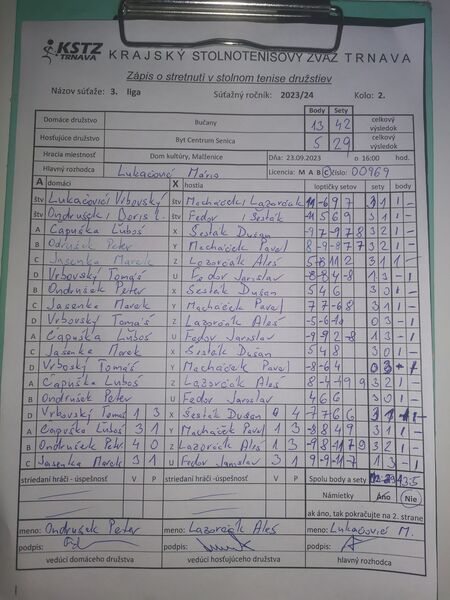 KSTZ TRNAVA KRAJSKÝ STOLNOTENISOVÝ ZVÄZ TRNAVA
Zápis o stretnutí v stolnom tenise družstiev
Názov súťaže: 3. liga Súťažný ročník: 2023/24 Kolo: 2.
Body Sety
Domáce družstvo Bučany 13 42 celkový výsledok
Hosťujúce družstvo Byt Centrum Senica 5 29 celkový výsledok
Hracia miestnosť Dom kultúry, Malženice Dňa: 23.09.2023 o 16:00 hod.
Hlavný rozhodca Lukačovič Mário Licencia: M A B C číslo: 00969
A domáci X hostia loptičky setov sety body
štv Lukačovič Vrbovský štv Macháček Lazorčák
štv Ondrušek štv Fedor Šesták 11 5 6 9 3 1 1 -
A Capuška Ľuboš X Šesták Dušan -9 7 -9 7 8 3 2 1 -
B Ondrušek Peter Y Macháček Pavel 8 -9 -9 7 7 3 2 1 -
C Jasenka Marek Z Lazorčák Aleš 3 1 1 -
D Vrbovský Tomáš U Fedor Jaroslav -8 -8 4 -8 1 3 - 1
B Ondrušek Peter X Šesták Dušan 5 4 6 3 0 1 -
C Jasenka Marek Y Macháček Pavel 7 7 -6 8 3 1 1 -
D Vrbovský Tomáš Z Lazorčák Aleš -5 -6 -11 0 3 - 1
A Capuška Ľuboš U Fedor Jaroslav -9 9 -2 -8 1 3 - 1
C Jasenka Marek X Šesták Dušan 5 4 8 3 0 1 -
D Vrbovský Tomáš Y Macháček Pavel -8 -6 4 0 3 - 1
A Capuška Ľuboš Z Lazorčák Aleš 8 -4 -4 9 9 3 2 1 -
B Ondrušek Peter U Fedor Jaroslav 4 6 6 3 0 1 -
D Vrbovský Tomáš 1 3 X Šesták Dušan 0 4 7 -7 6 6 3 1 1 -
A Capuška Ľuboš 3 1 Y Macháček Pavel 1 3 -8 8 4 9 3 1 1 -
B Ondrušek Peter 4 0 Z Lazorčák Aleš 1 3 -9 8 -11 7 9 3 2 1 -
C Jasenka Marek 3 1 U Fedor Jaroslav 3 1 9 -9 -11 -7 1 3 - 1
striedaní hráči - úspešnosť V P striedaní hráči - úspešnosť V P Spolu body a sety
Námietky Áno Nie
ak áno, tak pokračujte na 2. strane
meno: Ondrušek Peter meno: Lazorčák Aleš meno: Lukačovič M.
podpis: podpis: podpis:
vedúci domáceho družstva vedúci hosťujúceho družstva hlavný rozhodca